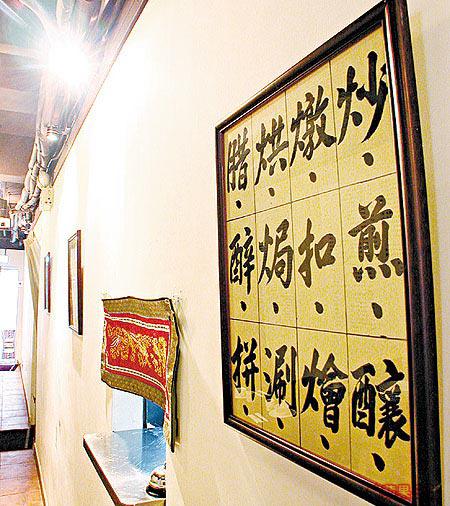 炒、煎、釀、
燉、扣、燴、
烘、焗、涮、
腊、醉、拼、